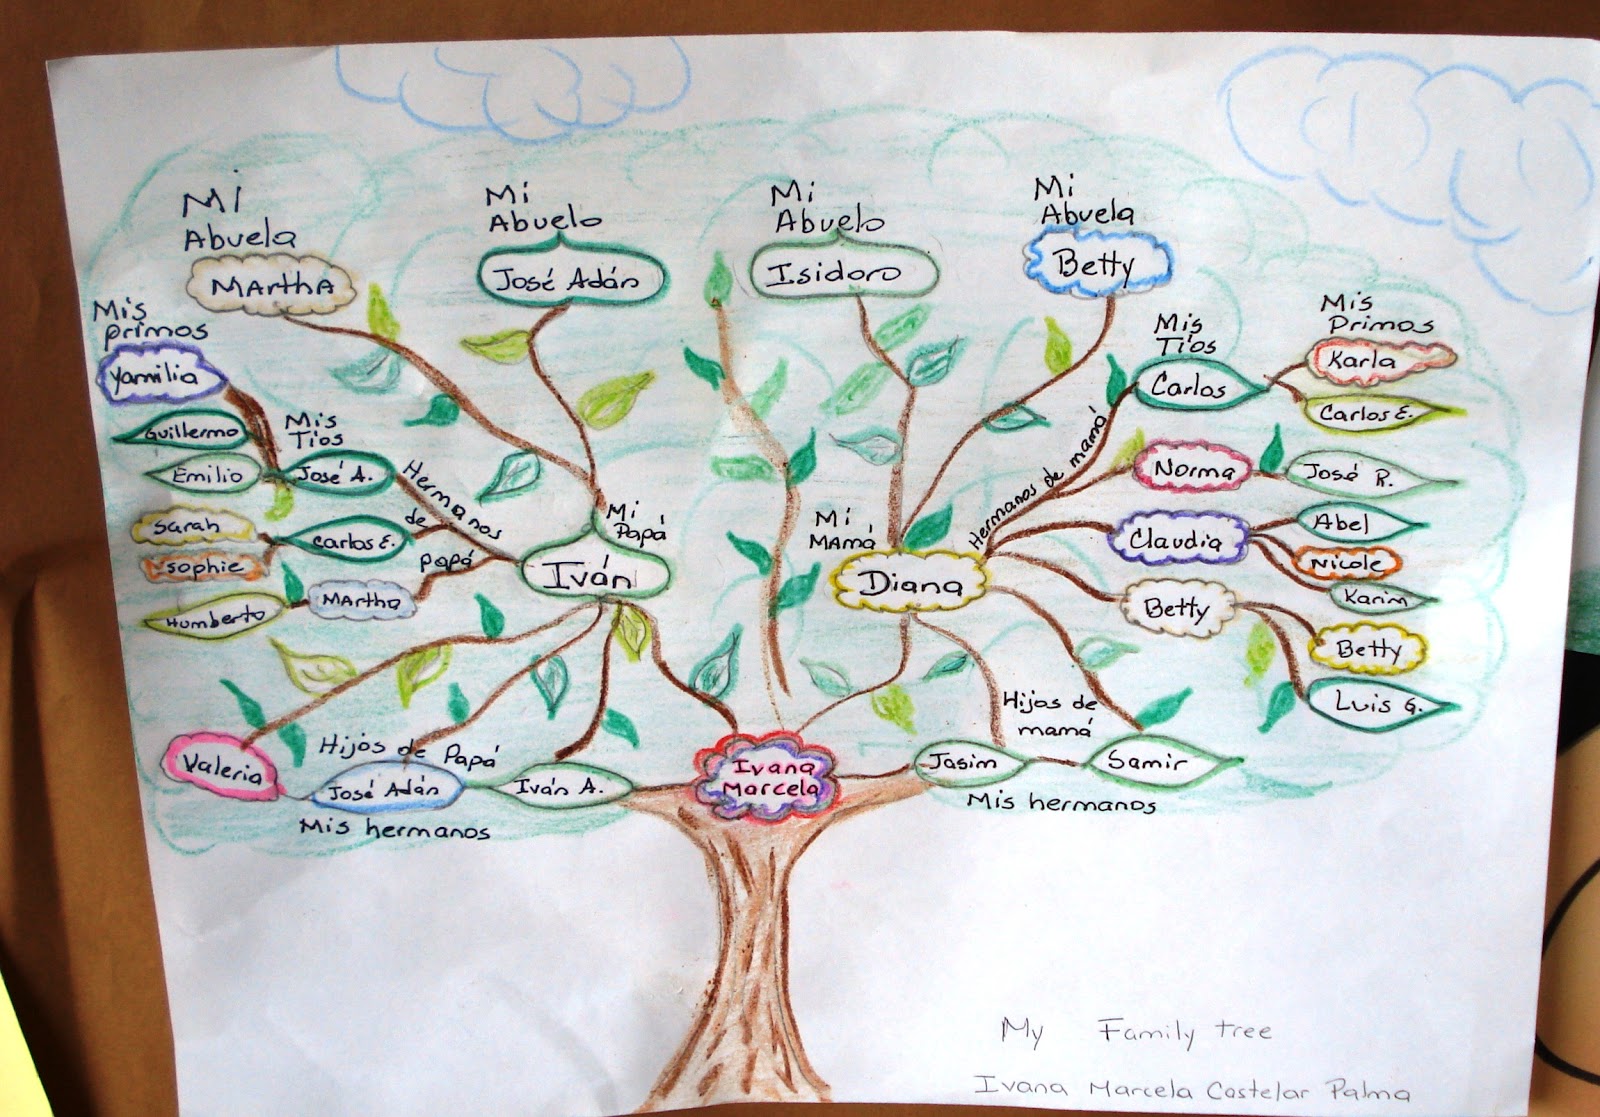 Mi
Abuela
Martha
Mi
Abuelo
José Adán
Mi
Abuelo
Isidoro
Mi
Abuela
Betty
Mis
primos
Yamilia
Guillermo
Emilio
Sarah
Sophie
Humberto
Mis
Tíos
José A.
Carlos E.
Martha
Hermanos
de
papá
Mi
Papá
Iván
Mi
Mamá
Diana
Hermanos de mamá
Mis
Tíos
Carlos
Norma
Claudia
Betty
Mis
Primos
Karla
Carlos E.
José R.
Abel
Nicole
Karim
Betty
Luis G.
Valeria
Hijos de Papá
José Adán
Iván A.
Mis hermanos
Ivana
Marcela
Hijos de
mamá
Jasim
Samir
Mis hermanos
My Family tree
Ivana Marcela Castelar Palma